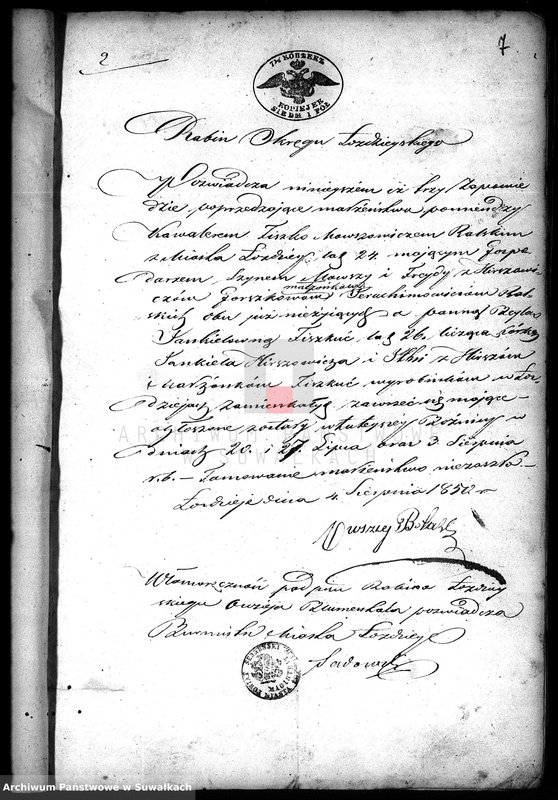 2
7
7½ КОПѢЕКЪ
KOPIEJEK
SIEDM I PÓŁ
Rabin Okręgu Łozdzieyskiego
Poświadcza niniejszem iż trzy Zapowie
dzie poprzedzające małżeństwo pomiędzy
Kawalerem Fiszko Mowszowiczem Ralskim
z Miasta Łozdziey lat 24 mającym Gospo
darzem Synem Mowszy i Freydy z Hirszowi
małżonkow
czów Gorszkowow
obu już nieżyjących a panną
Jankielowną Fiszkuć lat 26 licząca córką
Jankiela Hirszowicza i z Hirszów
małżonkow Fiszkuć wyrobników w Łoz
dziejach zamieszkałych zawrzeć się mające
ogłoszone zostały w tuteyszey Bóżnicy w
dniach 20. i 27 Lipca oraz 3 Sierpnia
r.b. – Tamowanie małżeństwa niezaszło
Łozdzieje dnia 4 Sierpnia 1850 r
Własnoręczność podpisu Rabina Łozdziey
skiego Owzieja Blumentala poświadcza
Burmistrz Miasta Łozdziey
Sadowski
ARCHIWUM PAŃSTWOWE
W SUWAŁKACH
Archiwum Państwowe w Suwałkach